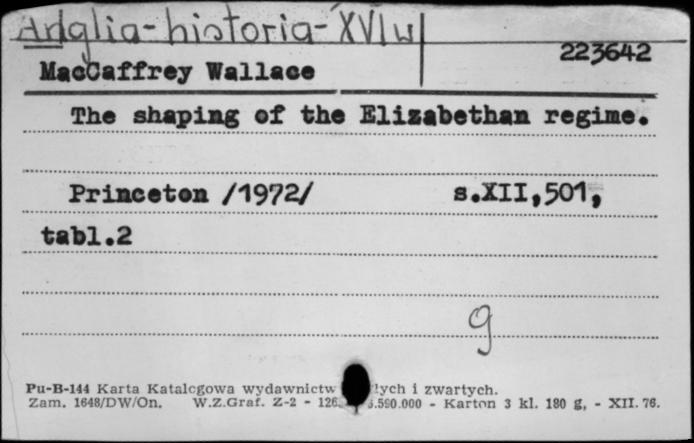 Anglia-historia-XVI w
223642
MacCaffrey Wallace
The shaping of the Elizabethan regime.
Princeton /1972/ s.XII,501,
tabl.2
g
Pu-B-144 Karta Katalogowa wydawnictw łych i zwartych.
Zam. 1648/DW/On. W.Z.Graf. Z-2 - 126. 3.590.000 - Karton 3 kl. 180 g, - XII. 76.